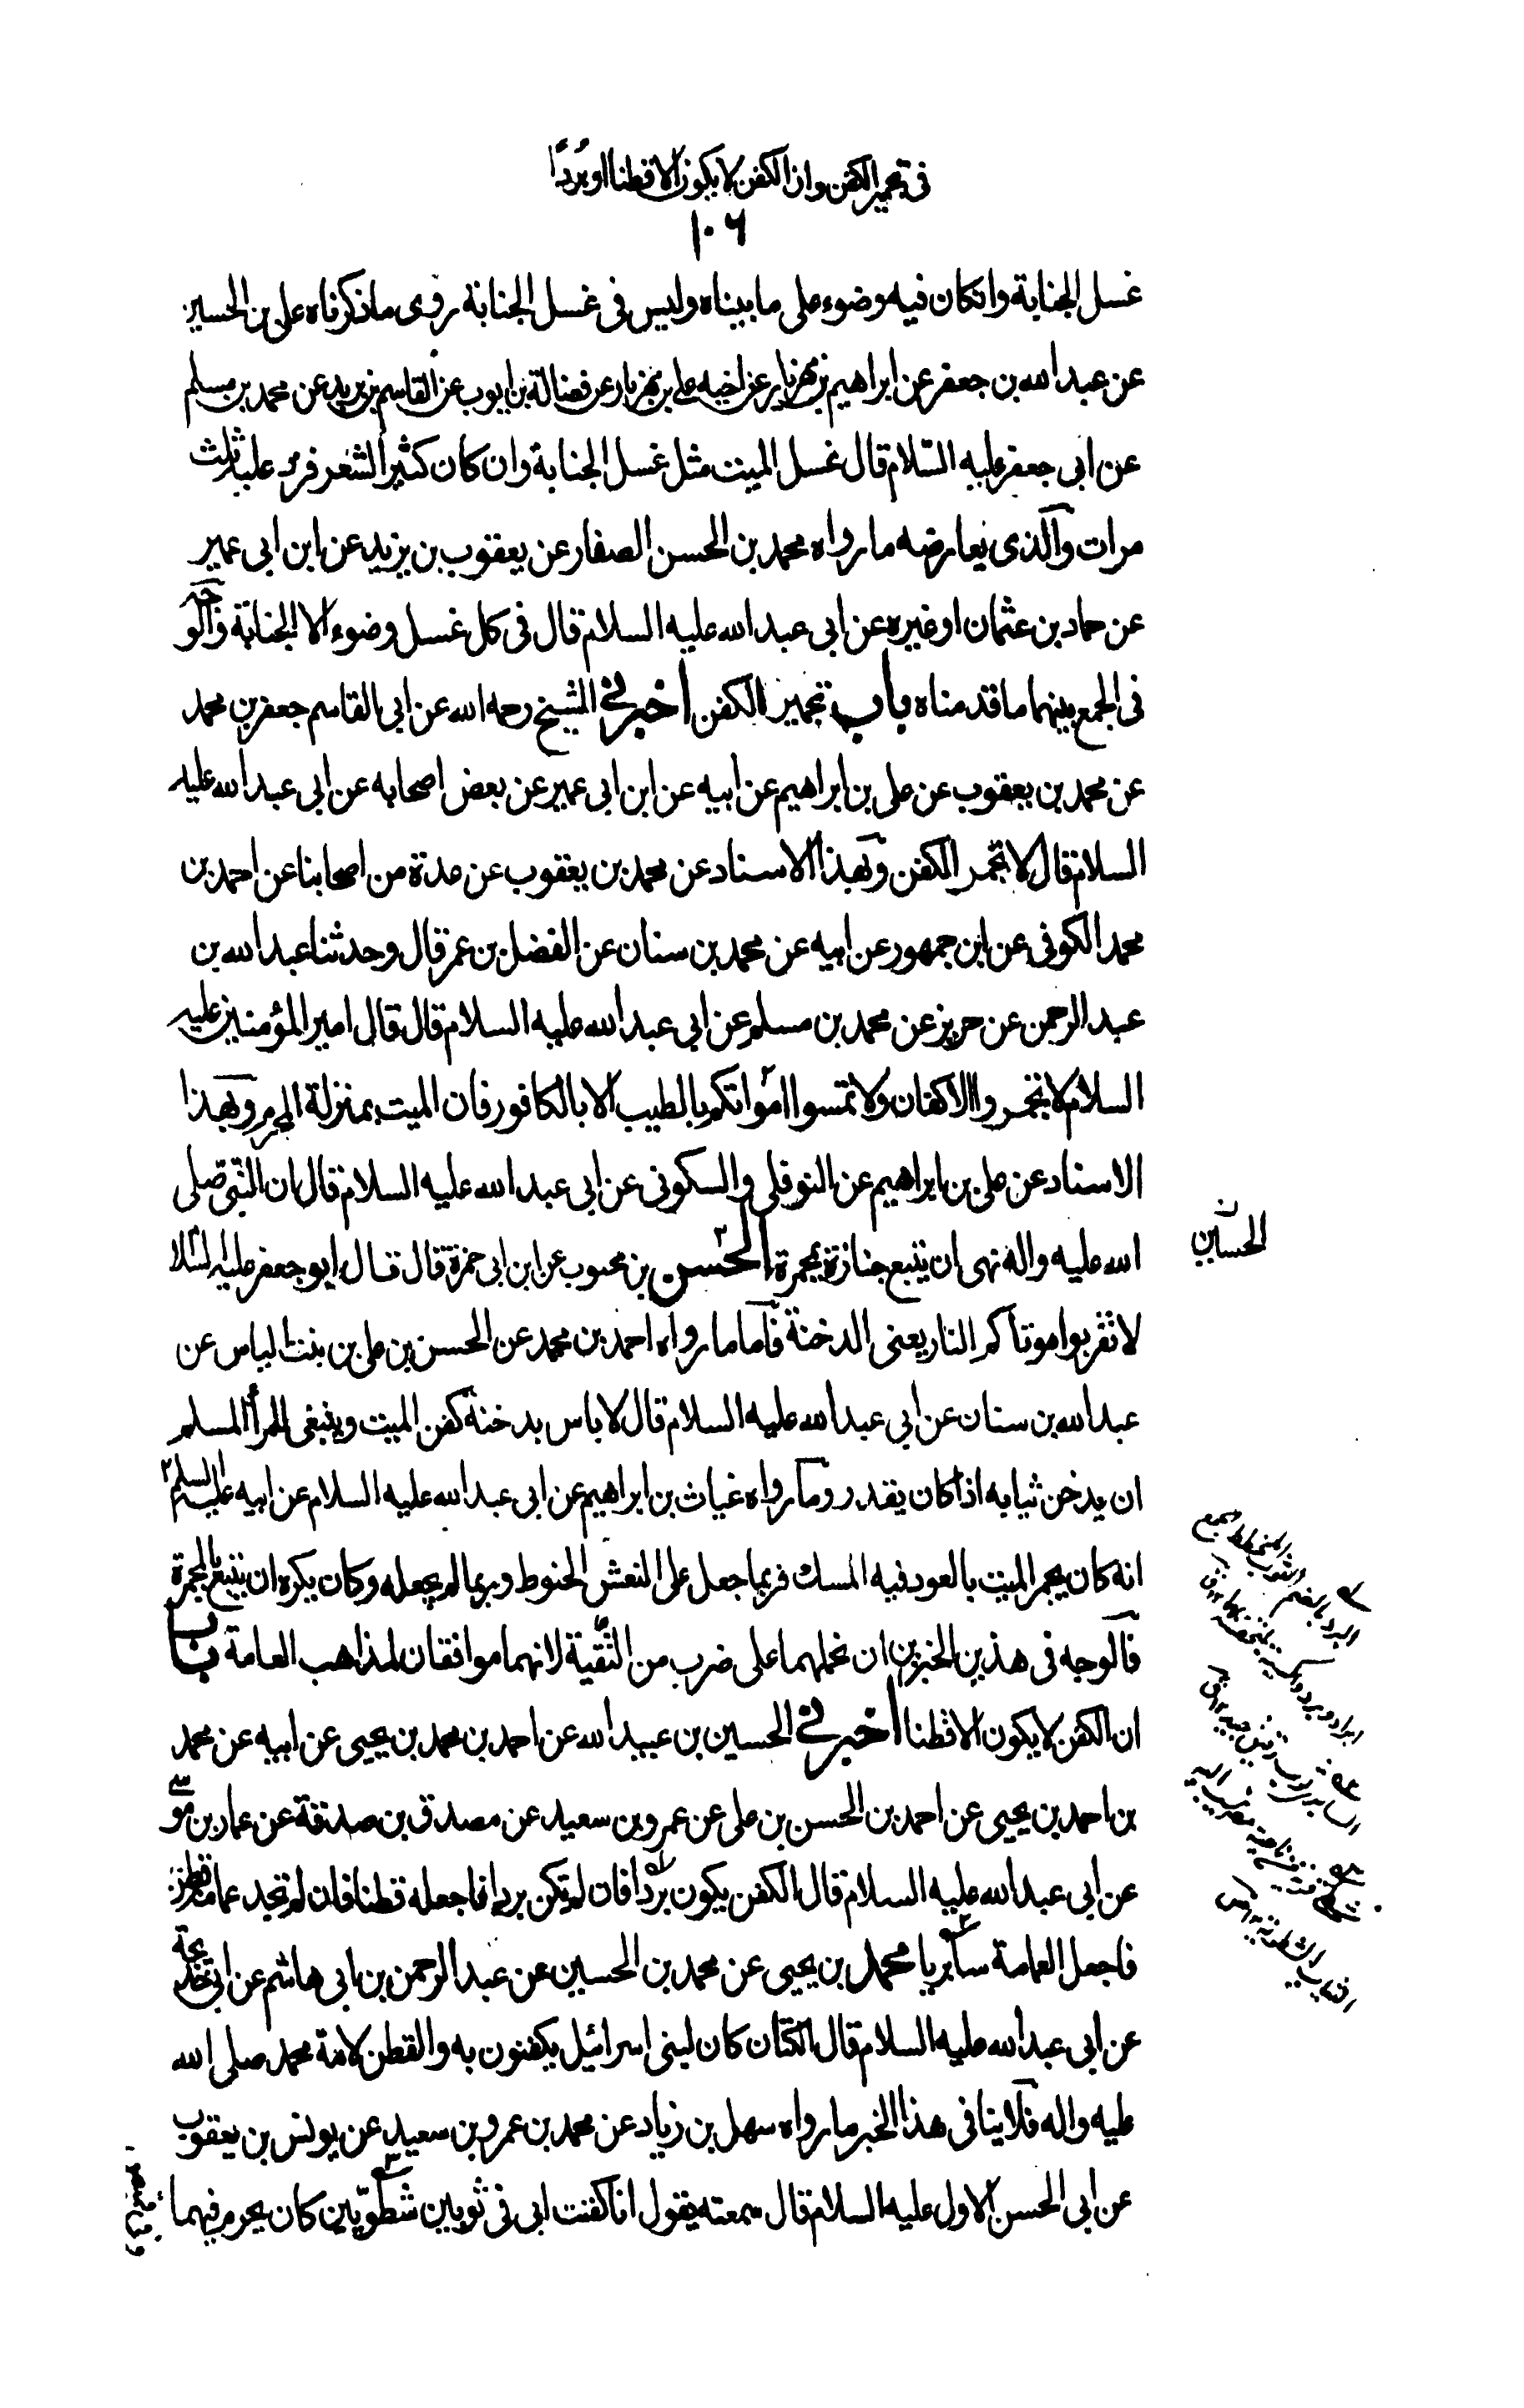 فى تجمير الكفن وان الكفن لا يكون الا قطنا او بردًا
١٠٦
غسل الجنابة وان كان فيه وضوء على ما بيناه وليس فى غسل الجنابة روى ما ذكرناه على بن الحسين
عن عبد الله بن جعفر عن ابراهيم بن مهزيار عن اخيه على بن مهزيار عن فضالة بن ايوب عن القاسم بن بريد عن محمد بن مسلم
عن ابى جعفر عليه السّلام قال غسل الميت مثل غسل الجنابة وان كان كثير الشعر فرد عليه ثلث
مرات والّذى يعارضه ما رواه محمد بن الحسن الصفار عن يعقوب بن يزيد عن ابن ابى عمير
عن حماد بن عثمان او غيره عن ابى عبد الله عليه السلام قال فى كل غسل وضوء الا الجنابة فالوجه
فى الجمع بينهما ما قدمناه باب تجمير الكفن اخبرنى الشيخ رحمه الله عن ابى القاسم جعفر بن محمد
عن محمد بن يعقوب عن على بن ابراهيم عن ابيه عن ابن ابى عمير عن بعض اصحابه عن ابى عبد الله عليه
السلام قال لا تجمر الكفن وبهذا الاسناد عن محمد بن يعقوب عن عدة من اصحابنا عن احمد بن
محمد الكوفى عن ابن جمهور عن ابيه عن محمد بن سنان عن المفضل بن عمر قال وحدثنا عبد الله بن
عبد الرحمن عن حريز عن محمد بن مسلم عن ابى عبد الله عليه السلام قال قال امير المؤمنين عليه
السلام لا تجمروا الاكفان ولا تمسوا امواتكم بالطيب الا بالكافور فان الميت بمنزلة المحرم وبهذا
الاسناد عن على بن ابراهيم عن النوفلى والسكونى عن ابى عبد الله عليه السلام قال ان النّبى صلى
الله عليه واله نهى ان يتبع جنازة بمجمرة الحسن بن محبوب عن ابن ابى حمزة قال قال ابو جعفر عليه السلا
الحسين
لا تقربوا موتاكم النار يعنى الدخنة فاما ما رواه احمد بن محمد عن الحسن بن على بن بنت الياس عن
عبد الله بن سنان عن ابى عبد الله عليه السلام قال لا باس بدخنة كفن الميت وينبغى للمرأ المسلم
ان يدخن ثيابه اذا كان يقدر وما رواه غياث بن ابراهيم عن ابى عبد الله عليه السلام عن ابيه عليه السلم
انه كان يجمر الميت بالعود فيه المسك فربما جعل على النعش الحنوط وربما لم يجعله وكان يكره ان يتبع بالمجمرة
فالوجه فى هذين الخبرين ان نحملهما على ضرب من التّقية لانهما موافقان لمذاهب العامة باب
ان الكفن لا يكون الا قطنا اخبرنى الحسين بن عبيد الله عن احمد بن محمد بن يحيى عن ابيه عن محمد
بن احمد بن يحيى عن احمد بن الحسن بن على عن عمرو بن سعيد عن مصدق بن صدقة عن عمار بن موسى
عن ابى عبد الله عليه السلام قال الكفن يكون بردا فان لم تكن بردا فاجعله قطنا فان لم تجد عمامة قطن
فاجعل العمامة سابريا محمد بن يحيى عن محمد بن الحسين عن عبد الرحمن بن ابى هاشم عن ابى خديجة
عن ابى عبد الله عليه السلام قال الكتّان كان لبنى اسرائيل يكفنون به والقطن لامة محمد صلى الله
عليه واله فلا ينافى هذا الخبر ما رواه سهل بن زياد عن محمد بن عمرو بن سعيد عن يونس بن يعقوب
عن ابى الحسن الاول عليه السلام قال سمعته يقول انا كفنت ابى فى ثوبين شطويّين كان يحرم فيهما